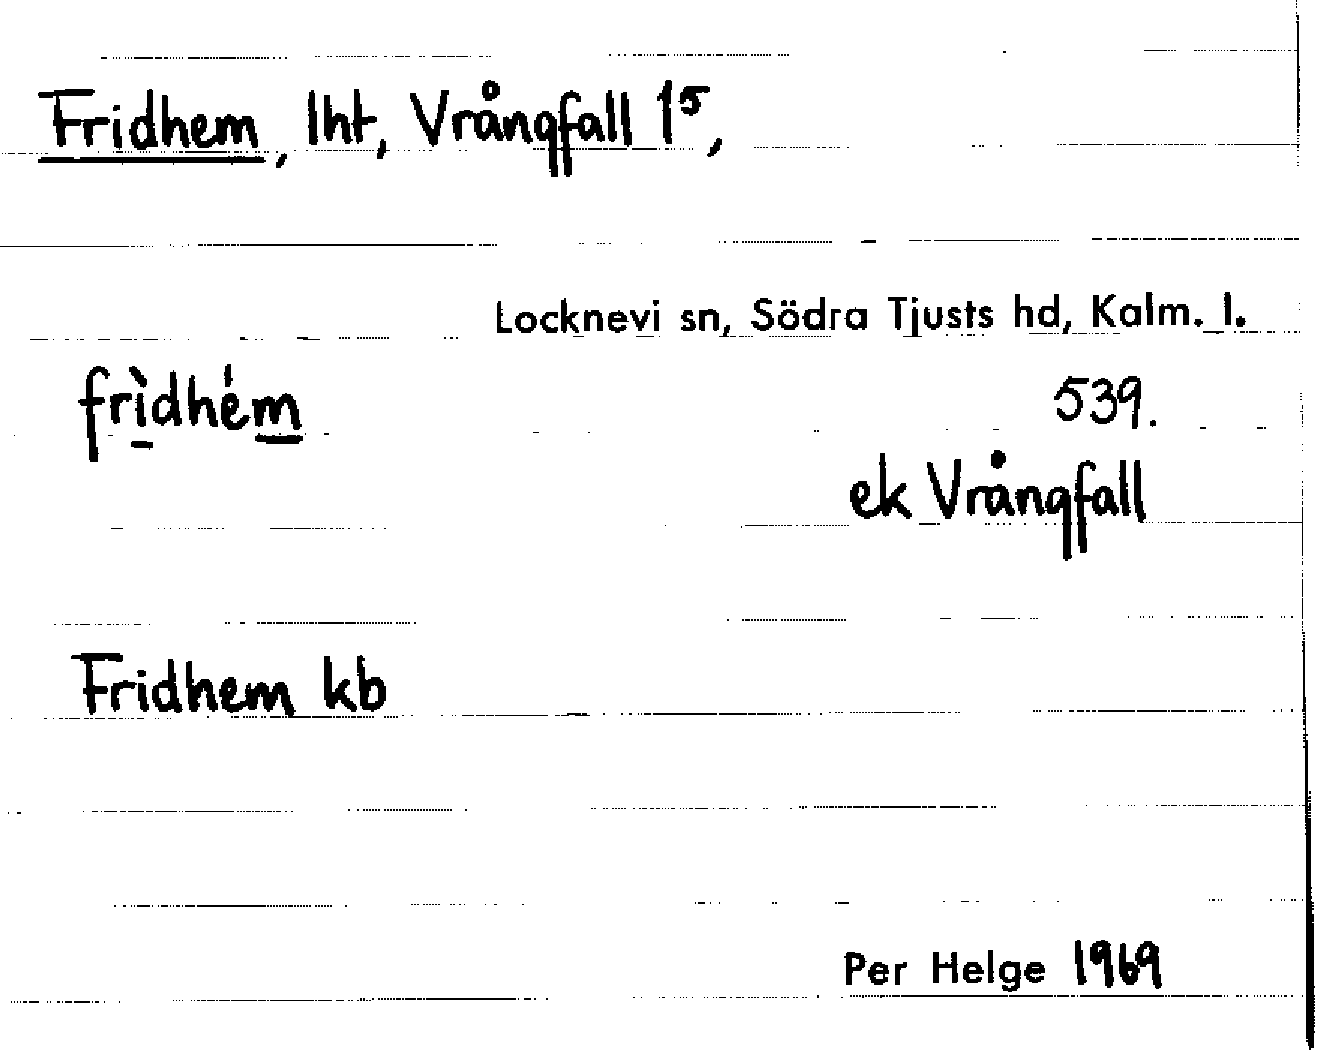 Fridhem, lht, Vrångfall 1⁵,
Locknevi sn, Södra Tjusts hd, Kalm. l.
frìdhém 539.
ek Vrångfall
Fridhem kb
Per Helge 1969